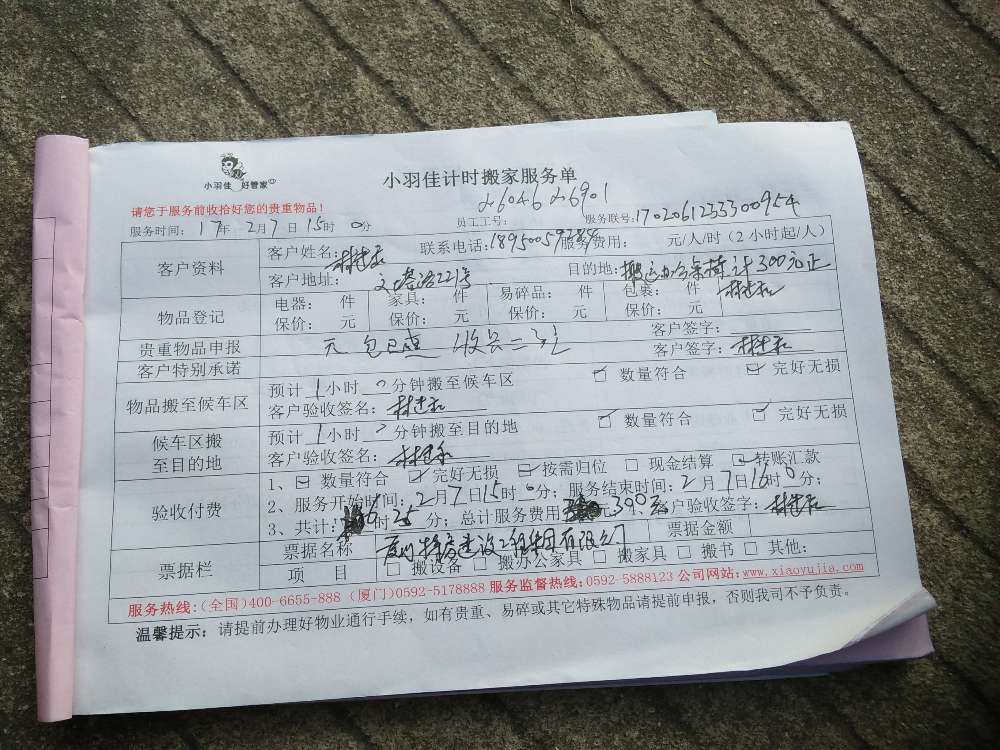 小羽佳 好管家
小羽佳计时搬家服务单
26046 26901
请您于服务前收拾好您的贵重物品！
服务时间：17年2月7日15时0分 员工工号： 服务联号：1702061233300954
客户资料
客户姓名： 联系电话：18950059284 服务费用： 元/人/时（2小时起/人）
客户地址： 221号 目的地：搬运办公桌椅 计300元正
物品登记
电器： 件 家具： 件 易碎品： 件 包裹： 件
保价： 元 保价： 元 保价： 元 保价： 元
贵重物品申报 客户签字：
客户特别承诺 客户签字：
物品搬至候车区
预计1小时0分钟搬至候车区 数量符合 完好无损
客户验收签名：
候车区搬至目的地
预计1小时 分钟搬至目的地 数量符合 完好无损
客户验收签名：
验收付费
1、数量符合 完好无损 按需归位 现金结算 转账汇款
2、服务开始时间：2月7日15时0分；服务结束时间：2月7日16时0分；
3、共计： 时 分；总计服务费用 元 客户验收签字：
票据栏
票据名称 建设工程集团有限公司 票据金额
项 目 搬设备 搬办公家具 搬家具 搬书 其他：
服务热线：(全国)400-6655-888 (厦门)0592-5178888 服务监督热线：0592-5888123 公司网站：www.xiaoyujia.com
温馨提示：请提前办理好物业通行手续，如有贵重、易碎或其它特殊物品请提前申报，否则我司不予负责。